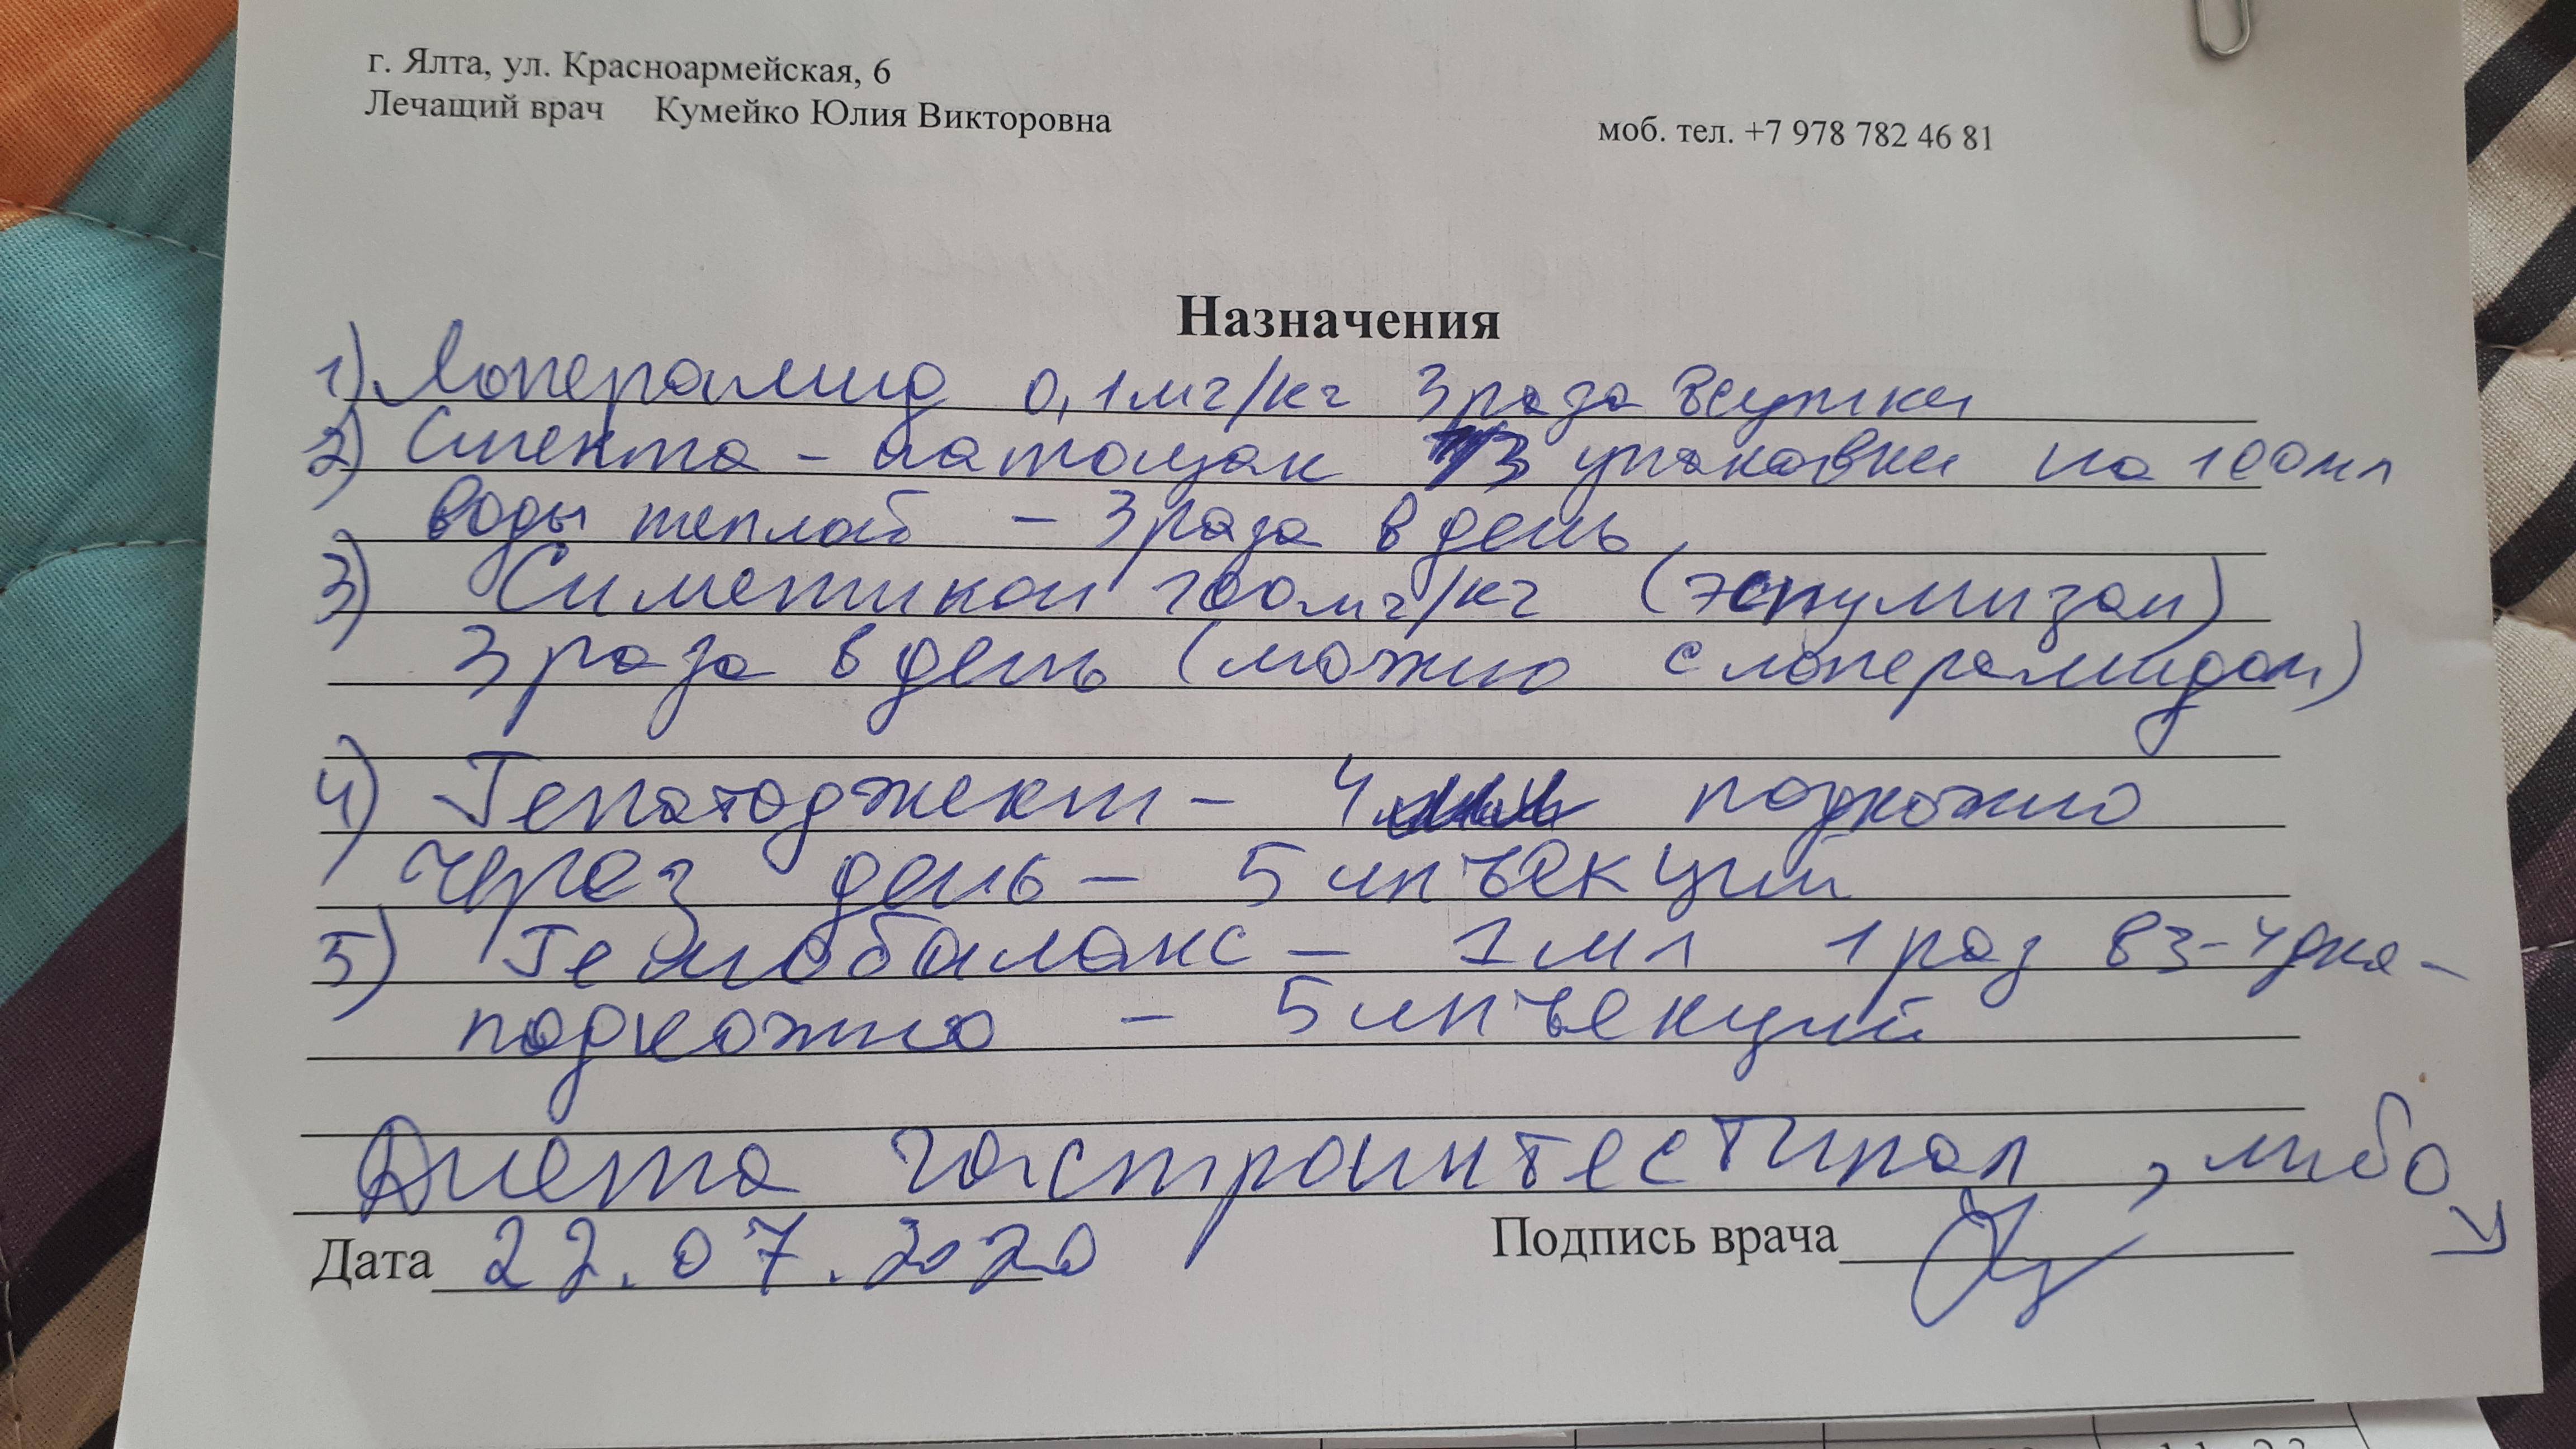 г. Ялта, ул. Красноармейская, 6
Лечащий врач Кумейко Юлия Викторовна
моб. тел. +7 978 782 46 81
Назначения
1) Лоперамид 0,1мг/кг 3 раза в сутки
2) Смекта - натощак 1/3 упаковки на 100мл
воды теплой - 3 раза в день
3) Симетикон 100мг/кг (эспумизан)
3 раза в день (можно с лоперамидом)
4) Гепатоджект - 4 подкожно
через день - 5 инъекций
5) Гемобаланс - 1мл 1 раз в 3-4 дня -
подкожно - 5 инъекций
Диета гастроинтестинал, либо
Дата 22.07.2020 Подпись врача